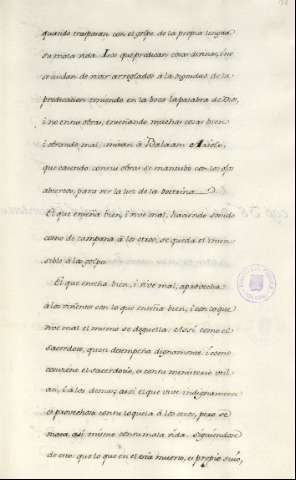 quando traspasan con el golpe de la propia lengua
su mala vida. Los que predican cosas divinas, i no
cuidan de vivir arreglados à la dignidad de la
predicacion teniendo en la boca la palabra de Dios,
i no en sus obras, enseñando muchas cosas bien
i obrando mal, imitan à Balaam
que caiendo con sus obras se mantubo con los ojos
abiertos, para ver la luz de la doctrina.
El que enseña bien, i vive mal, haciendo sonido
como de campana à los otros, se queda el insen-
sible à los golpes.
El que enseña bien, i vive mal, aprovecha
à los oientes con lo que enseña bien, i con lo que
vive mal el mismo se deguella. Assi como el
sacerdote, que se desempeña dignamente, i como
conviene el sacerdocio, es con su ministerio util
a si, i à los demas; assi el que vive indignamente
es provechoso con su loquela à los otros, pero se
mata asi mismo con su mala vida. Siguiendose
de eso que lo que en el era muerto, es propio suio,